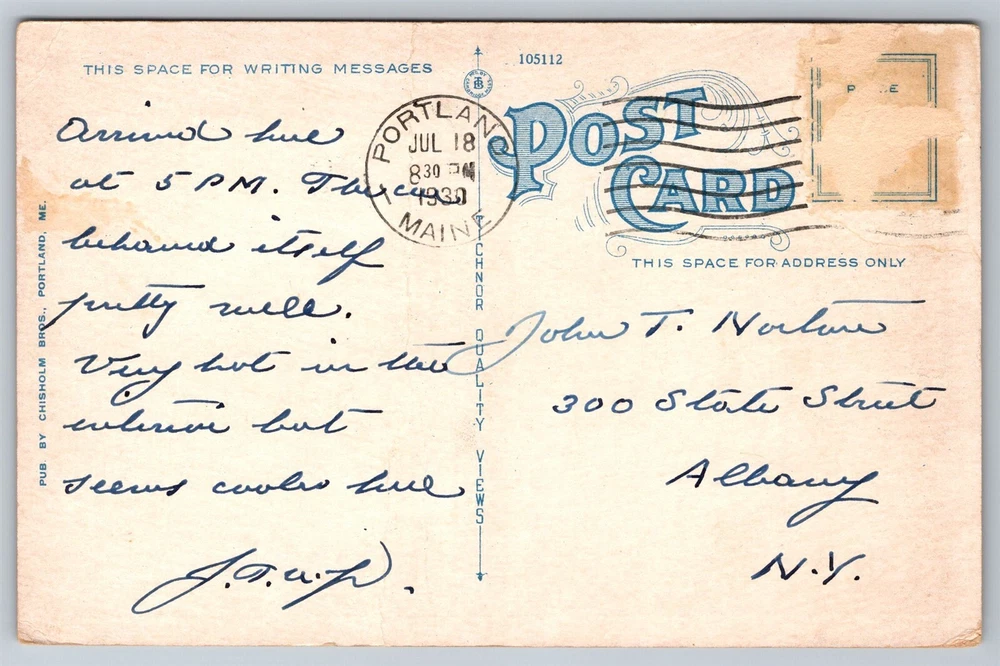 THIS SPACE FOR WRITING MESSAGES
105112
Arrived here
at 5 P.M. The car
behaved itself
pretty well.
Very hot in the
interior but
seems cooler here
PORTLAND
JUL 18
8 30 PM
1930
MAINE
POST
CARD
THIS SPACE FOR ADDRESS ONLY
John T. Norton
300 State Street
Albany
N.Y.
PUB. BY CHISHOLM BROS., PORTLAND, ME.
TICHNOR QUALITY VIEWS